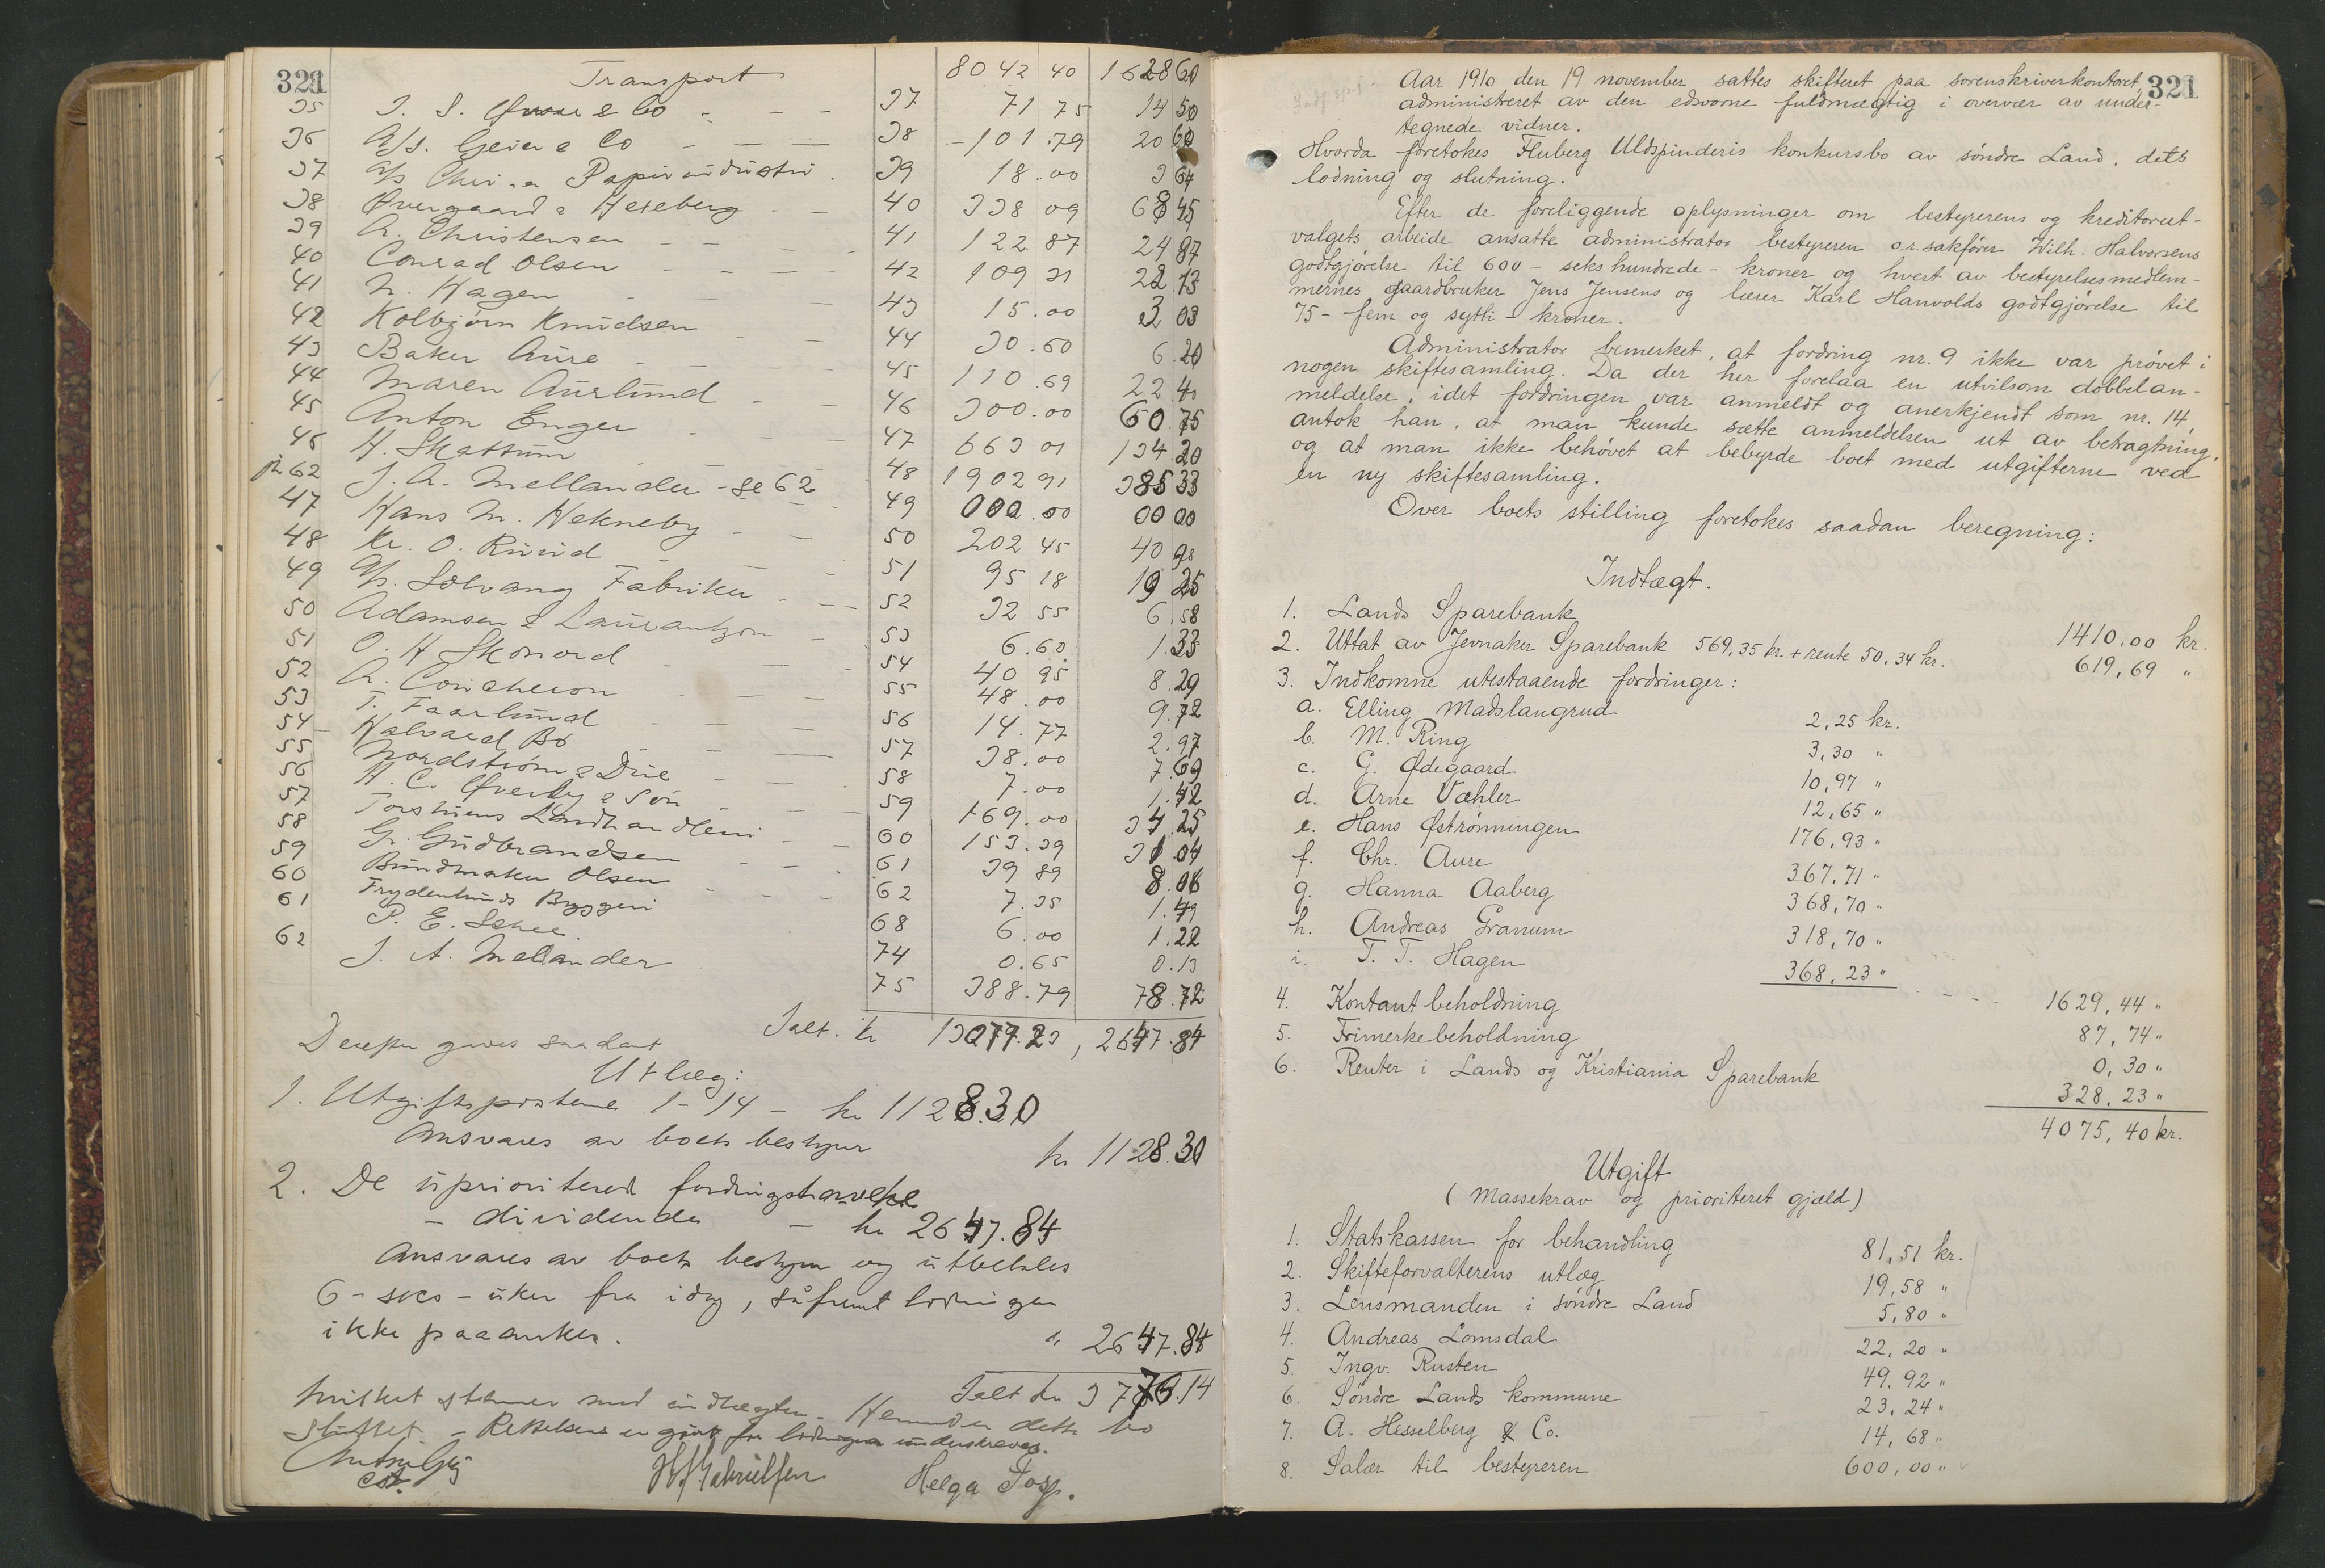 321
Transport 8042 40 1628 60
35 J. S. & Co - - - 37 71 75 14 50
36 A/S. Geier & Co - - - 38 -101.79 20 60
37 A/s Chr.a Papirindustri. 39 18.00 3 64
38 Overgaard & Heseberg - - 40 338 09 68 45
39 A. Christensen - - 41 122 87 24 87
40 Conrad Olsen - - - - 42 109 31 22.13
41 N. Hagen 43 15.00 3 03
42 Kolbjørn Knudsen - - 44 30.60 6.20
43 Baker Aure - - - 45 110.69 22.40
44 Maren Aurlund - - 46 300.00 60.75
45 Anton Enger - - - 47 663 01 134.20
46 H. Skattum 48 1902 91 385 33
62 J. A. Mellander - se 62 49 000.00 00 00
47 Hans M. Hekneby - - 50 202 45 40 98
48 Kr. O. Ruud 51 95 18 19 25
49 A/s. Solvang Fabriker - - - 52 32 55 6.58
50 Adamsen & Laurantzon - 53 6.60 1.33
51 O. H Skonord - - 54 40 95 8.29
52 A. Concheron - - - 55 48.00 9.72
53 T. Faarlund - - 56 14.77 2.97
54 Halvard Bø - - - 57 38.00 7.69
55 Nordstrøm & Due - - 58 7.00 1.42
56 H. C. Øverby & Søn - - - 59 169.00 34.25
57 Torstuens Landhandleri - - 60 153.39 31.04
58 G. Gudbrandsen - - 61 39 89 8.06
59 Bundmaker Olsen - - - 62 7.35 1.49
60 Frydenlunds Bryggeri 68 6.00 1.22
61 P. E. 74 0.65 0.13
62 J. A. Mellander 75 388.79 78.72
Ialt. kr 13077.23, 2647.84
Derefter gives saadant
Utlæg:
1. Utgiftsposterne 1-14 - kr 1128.30
Ansvares av boets bestyrer kr 1128.30
2. De uprioriterede fordringshavere
- dividende - kr 2647.84
Ansvares av boets bestyrer og utbetales
6 - seks - uker fra idag, såfremt lodningen
ikke paaankes. " 2647.84
Ialt kr 3776.14
hvilket stemmer med indtægten. Hermed er dette bo
sluttet. - Rettelsene er gjort før lodningen underskreves.
Helga
321
Aar 1910 den 19 november sattes skifteret paa sorenskriverkontoret,
administreret av den edsvorne fuldmægtig i overvær av under-
tegnede vidner.
Hvorda foretokes Fluberg Uldspinderis konkursbo av søndre Land, dets
lodning og slutning.
Efter de foreliggende oplysninger om bestyrerens og kreditorut-
valgets arbeide ansatte administrator bestyreren o.r.sakfører Wilh. Halvorsens
godtgjørelse til 600 - seks hundrede - kroner og hvert av bestyrelsesmedlem-
mernes gaardbruker Jens Jensens og lærer Karl Hanvolds godtgjørelse til
75 - fem og sytti - kroner.
Administrator bemerket, at fordring nr. 9 ikke var prøvet i
nogen skiftesamling. Da der her forelaa en utvilsom dobbelan-
meldelse, idet fordringen var anmeldt og anerkjendt som nr. 14,
antok han, at man kunde sætte anmeldelsen ut av betragtning,
og at man ikke behøvet at bebyrde boet med utgifterne ved
en ny skiftesamling.
Over boets stilling foretokes saadan beregning:
Indtægt.
1. Lands Sparebank 1410,00 kr.
2. Uttat av Jevnaker Sparebank 569,35 kr. + rente 50,34 kr. 619,69 "
3. Indkomne utestaaende fordringer:
a. Elling Madslangrud 2,25 kr.
b. M. Ring 3,30 "
c. G. Ødegaard 10,97 "
d. Arne Væhler 12,65 "
e. Hans Østrønningen 176,93 "
f. Chr. Aure 367,71 "
g. Hanna Aaberg 368,70 "
h. Andreas Granum 318,70 "
i. T. T. Hagen 368,23 " 1629,44 "
4. Kontantbeholdning 87,74 "
5. Frimerkebeholdning 0,30 "
6. Renter i Lands og Kristiania Sparebank 328,23 "
4075,40 kr.
Utgift
(Massekrav og prioriteret gjæld)
1. Statskassen for behandling 81,51 kr.
2. Skifteforvalterens utlæg 19,58 "
3. Lensmanden i søndre Land 5,80 "
4. Andreas Lomsdal 22,20 "
5. Ingv. Rusten 49,92 "
6. Søndre Lands kommune 23,24 "
7. A. Hesselberg & Co. 14,68 "
8. Salær til bestyreren 600,00 "